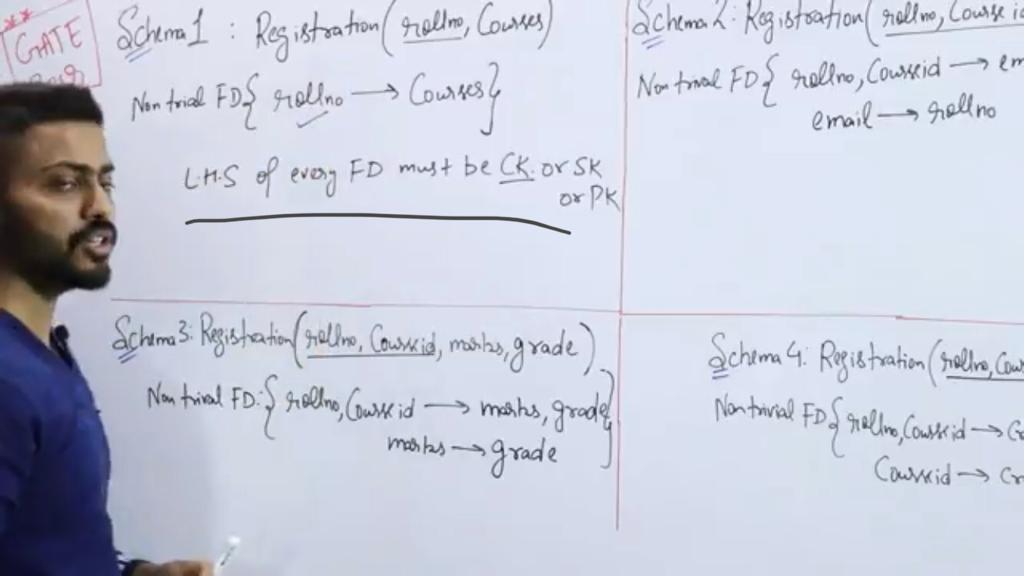 ** GATE
Schema 1 : Registration (rollno, Courses)
Non trial FD { rollno → Courses }
L.H.S of every FD must be CK. or SK
or PK
Schema 2: Registration (rollno, Course id
Non trival FD { rollno, Courseid → em
email → rollno
Schema 3: Registration (rollno, Courseid, marks, grade)
Non trival FD: { rollno, Courseid → marks, grade
marks → grade }
Schema 4: Registration (rollno, Cour
Non trivial FD { rollno, Courseid → Cr
Courseid → Cr